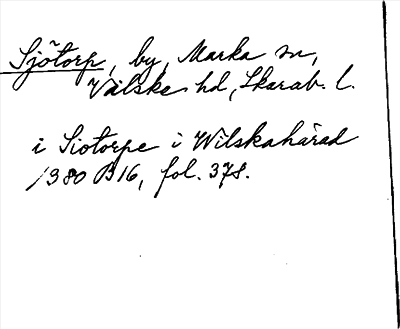 Sjötorp, by, Marka sn,
Vilske hd, Skarab. l.
i Siotorpe i Wilskahärad
1380 B16, fol. 378.